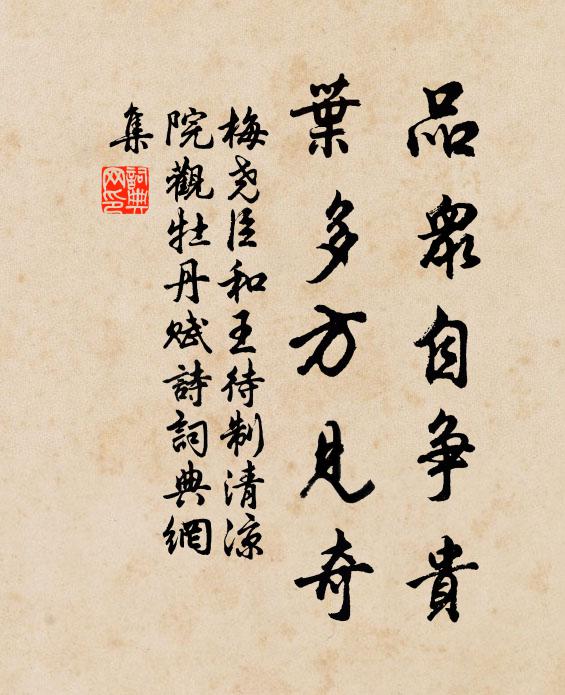 品眾自争貴
葉多方見奇
梅尧臣和王待制清涼
院觀牡丹赋詩詞典網
集
詞典
网印